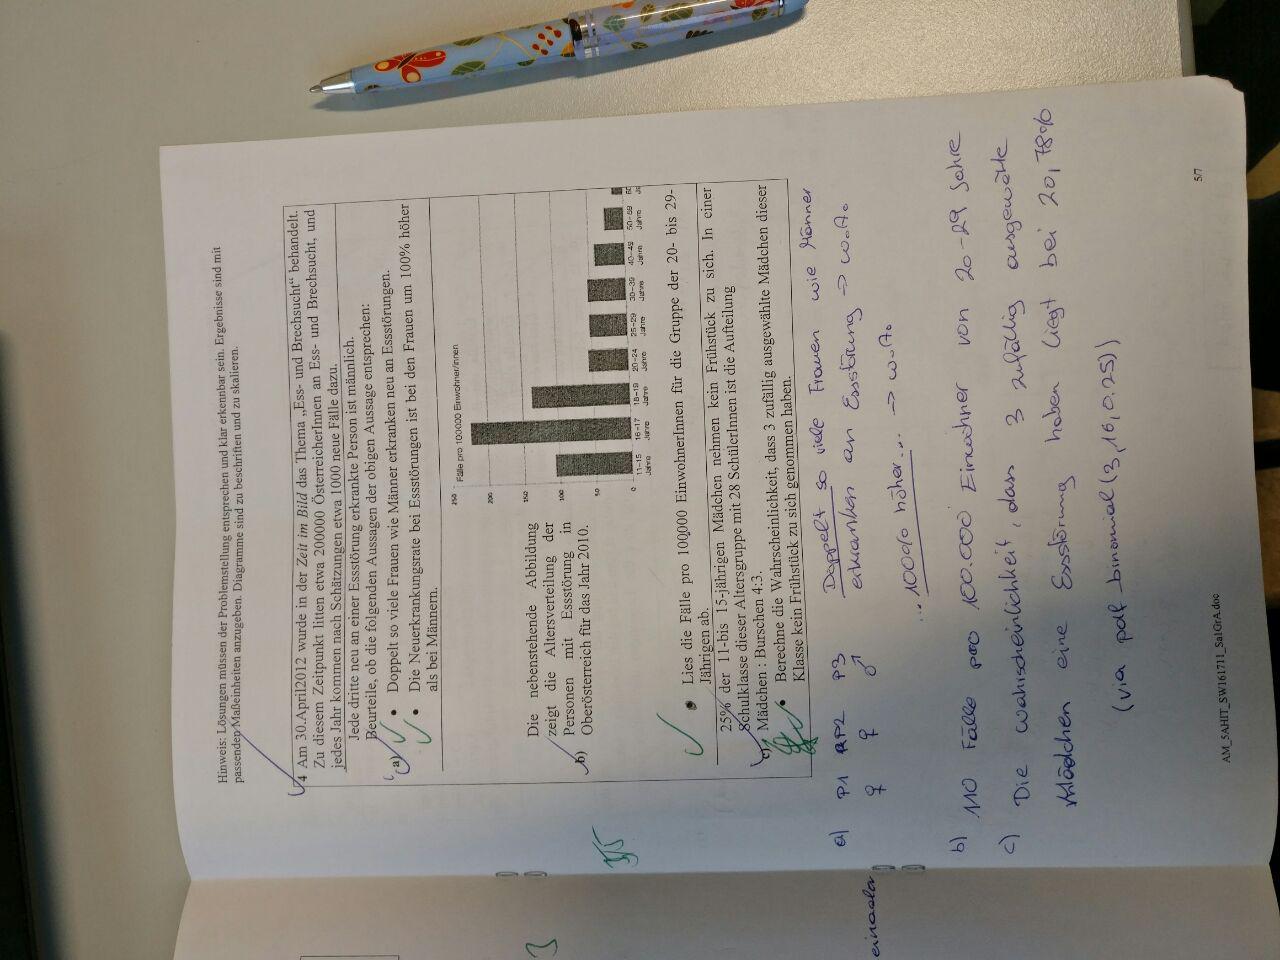 Hinweis: Lösungen müssen der Problemstellung entsprechen und klar erkennbar sein. Ergebnisse sind mit
passenden Maßeinheiten anzugeben. Diagramme sind zu beschriften und zu skalieren.
4 Am 30.April2012 wurde in der Zeit im Bild das Thema „Ess- und Brechsucht“ behandelt.
Zu diesem Zeitpunkt litten etwa 200000 ÖsterreicherInnen an Ess- und Brechsucht, und
jedes Jahr kommen nach Schätzungen etwa 1000 neue Fälle dazu.
Jede dritte neu an einer Essstörung erkrankte Person ist männlich.
Beurteile, ob die folgenden Aussagen der obigen Aussage entsprechen:
a) • Doppelt so viele Frauen wie Männer erkranken neu an Essstörungen.
• Die Neuerkrankungsrate bei Essstörungen ist bei den Frauen um 100% höher
als bei Männern.
250 Fälle pro 100000 Einwohner/innen
200
150
100
50
0
11–15 16–17 18–19 20–24 25–29 30–39 40–49 50–59 60
Jahre Jahre Jahre Jahre Jahre Jahre Jahre Jahre
3
3/5
Die nebenstehende Abbildung
zeigt die Altersverteilung der
Personen mit Essstörung in
b) Oberösterreich für das Jahr 2010.
• Lies die Fälle pro 100000 EinwohnerInnen für die Gruppe der 20- bis 29-
Jährigen ab.
25% der 11-bis 15-jährigen Mädchen nehmen kein Frühstück zu sich. In einer
Schulklasse dieser Altersgruppe mit 28 SchülerInnen ist die Aufteilung
c) Mädchen : Burschen 4:3.
• Berechne die Wahrscheinlichkeit, dass 3 zufällig ausgewählte Mädchen dieser
Klasse kein Frühstück zu sich genommen haben.
a) P1 P2 P3 Doppelt so viele Frauen wie Männer
♀ ♀ ♂ erkranken an Essstörung → w.A.
... 100% höher... → w.A.
b) 110 Fälle pro 100.000 Einwohner von 20-29 Jahre
c) Die Wahrscheinlichkeit, dass 3 zufällig ausgewählte
Mädchen eine Essstörung haben liegt bei 20,78%
(via pdf_binomial(3,16,0.25))
5/7
AM_5AHIT_SW161711_Sa1GrA.doc